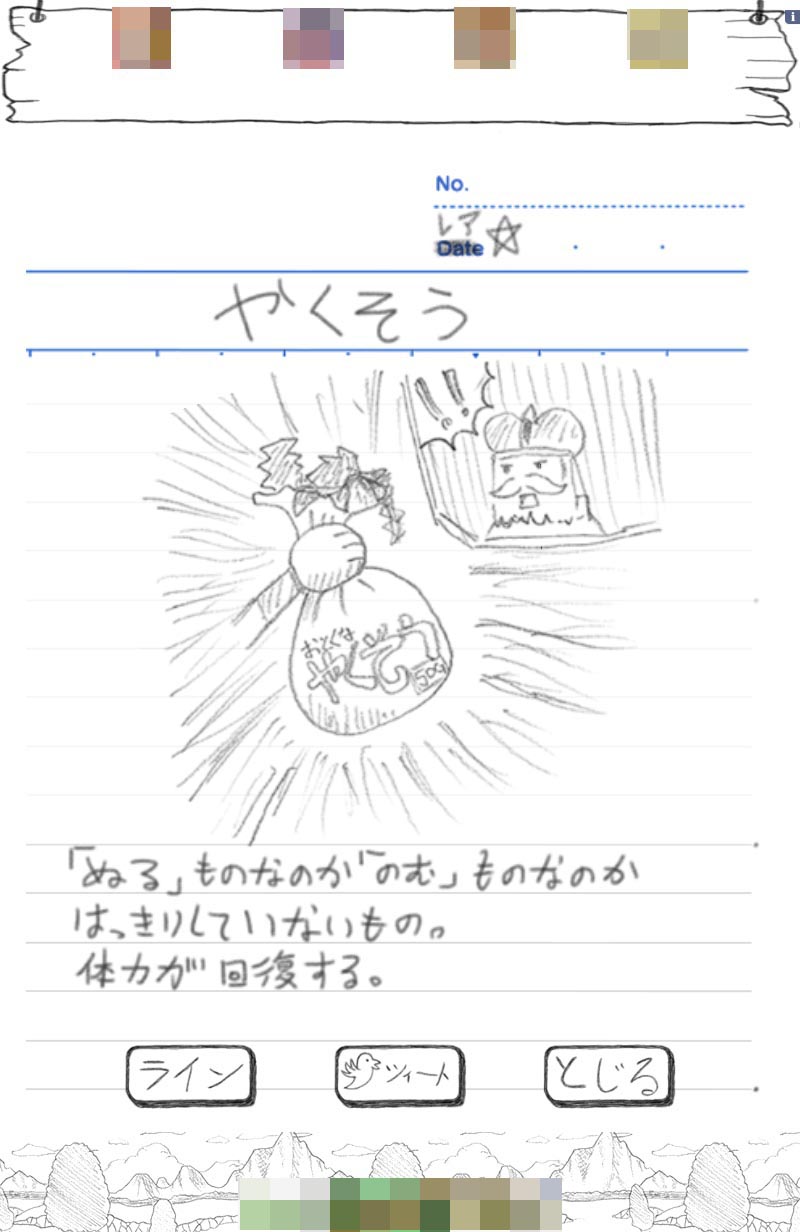 No.
レア☆
Date
やくそう
!!
おとくな
やくそう
50G
「ぬる」ものなのか「のむ」ものなのか
はっきりしていないもの。
体力が回復する。
ライン
ツィート
とじる